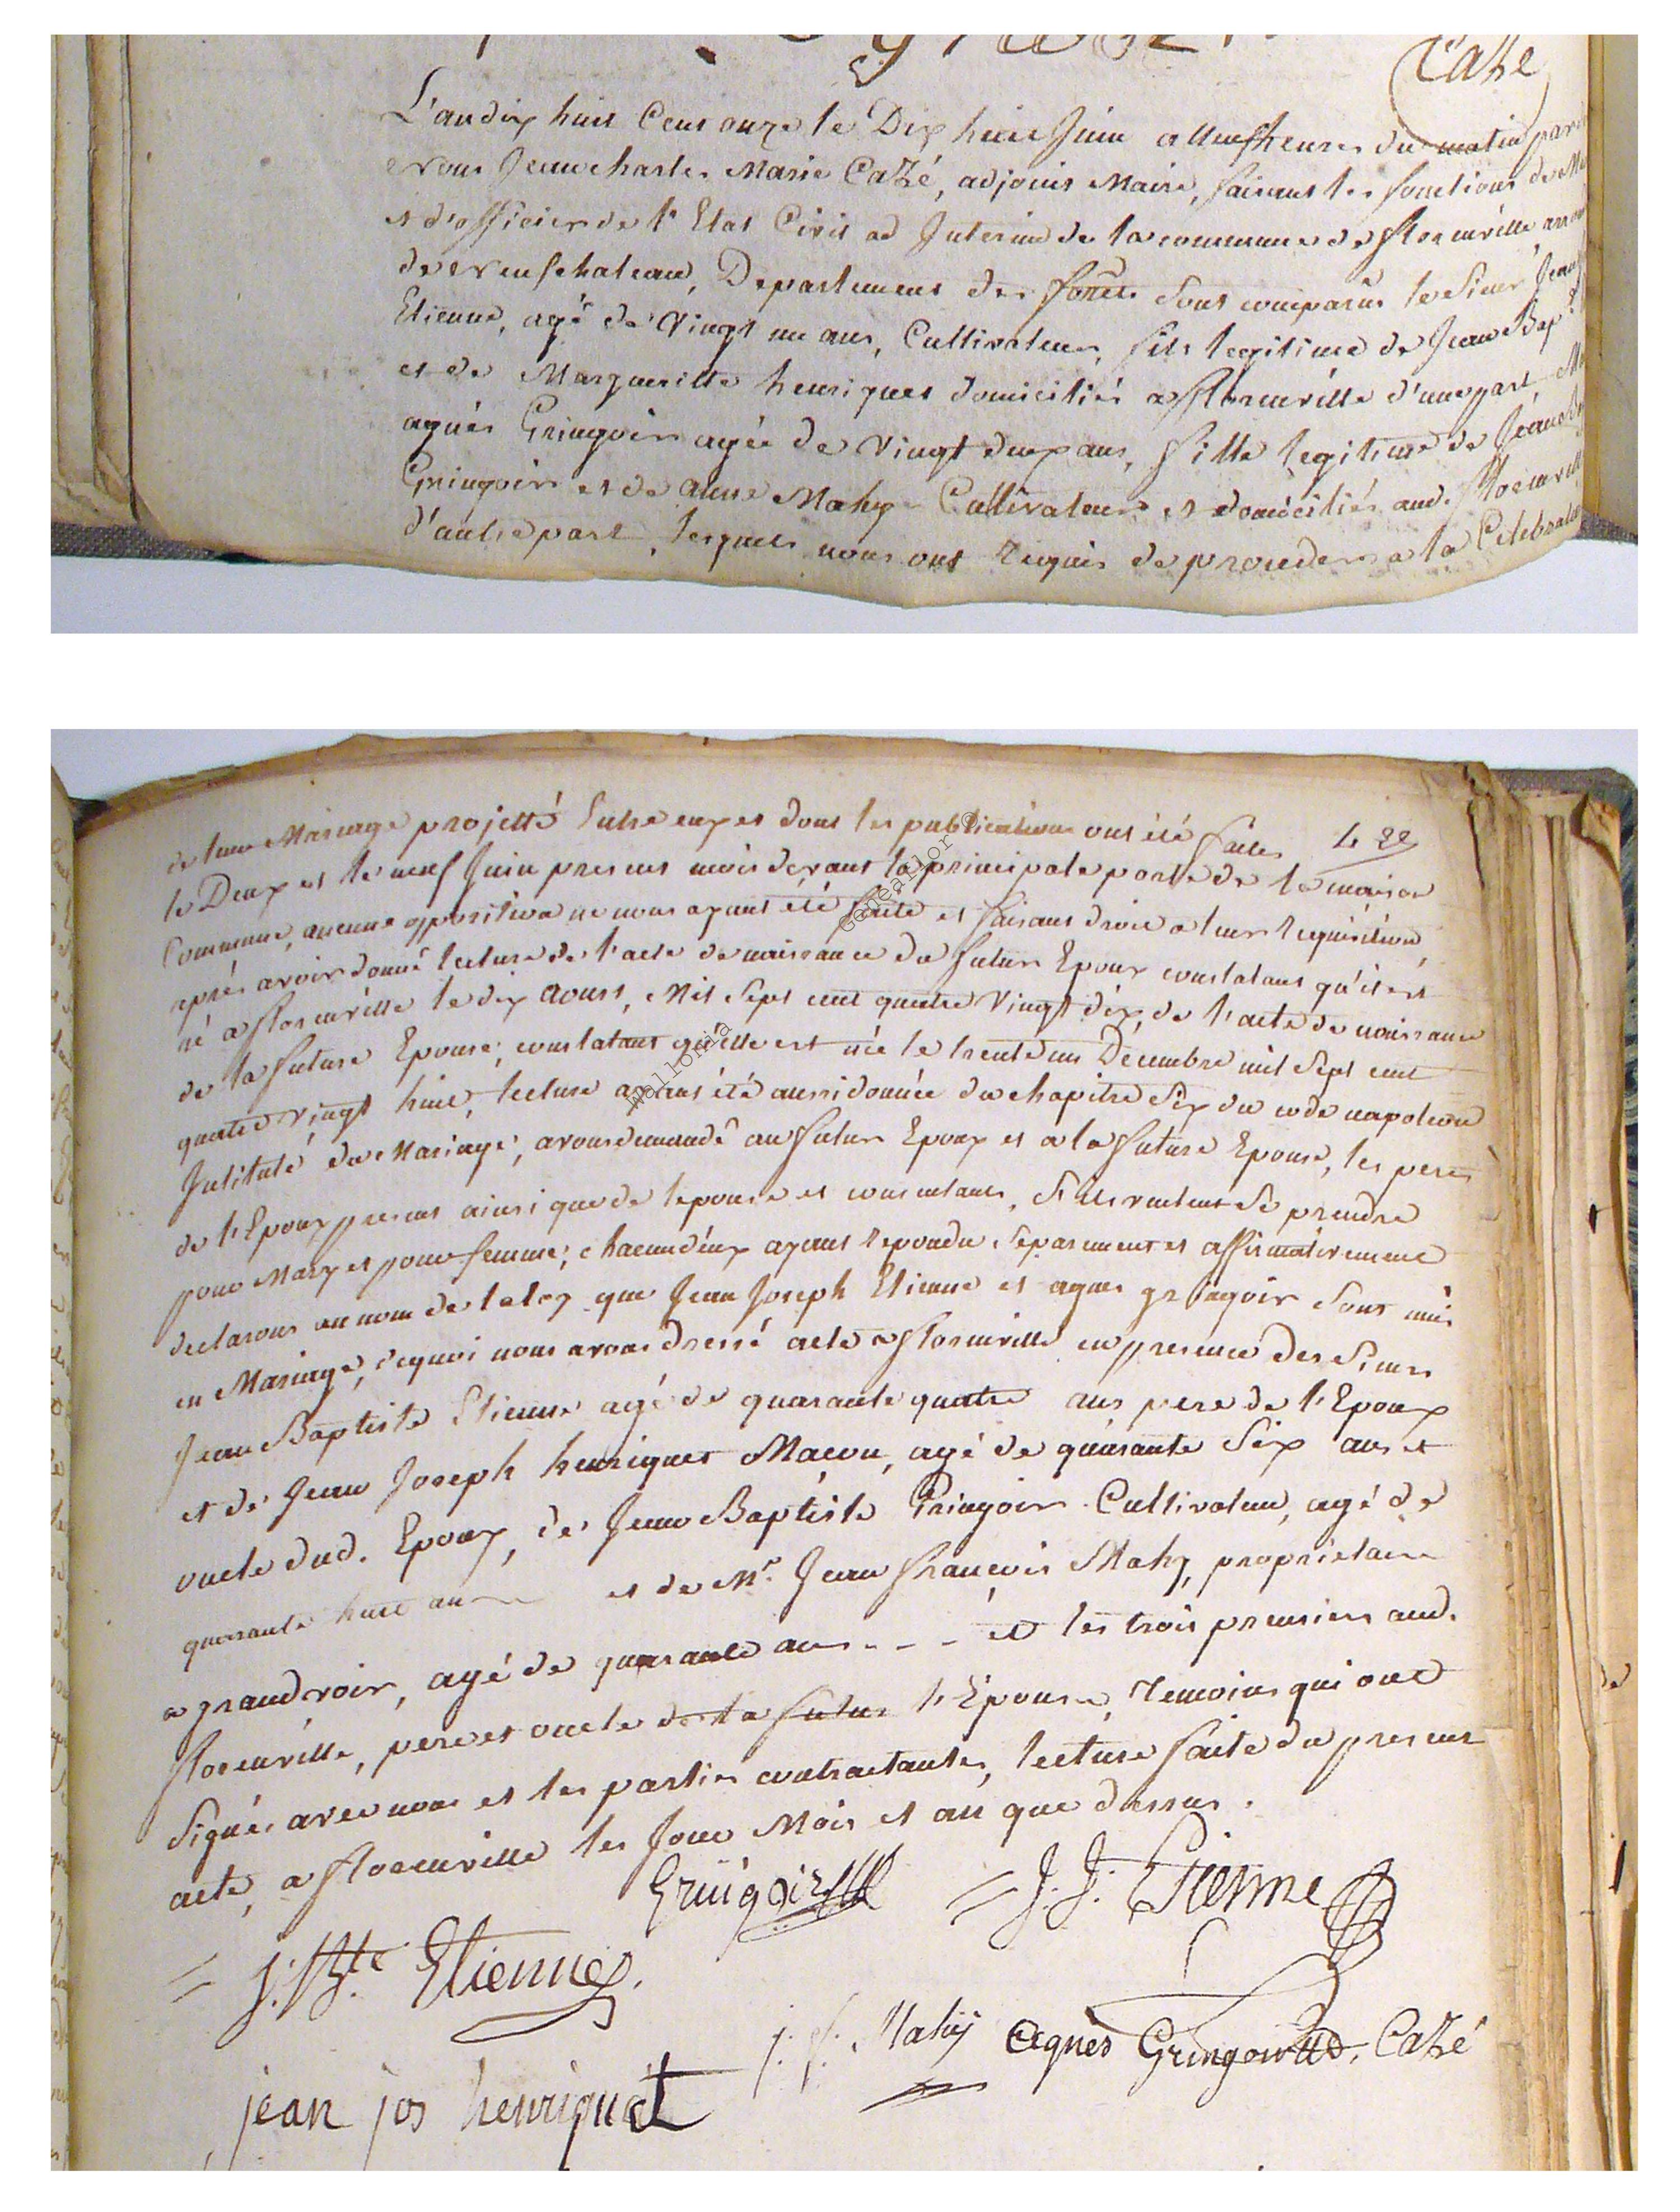 Cazé
L'an dix huit Cent onze le Dix huit Juin a Neuf heures du matin par
Nous Jean charles Marie Cazé, adjoint Maire, faisant les fonctions de
et d'officier de l'Etat Civil ad Interim de la commune de florenville
de neufchateau, Departement des forêts sont comparus le Sieur Jean
Etienne, agé de Vingt un ans, Cultivateur, fils legitime de Jean Bapt
et de Margueritte henriques domiciliés a florenville d'une part
agnés Gringoir agée de Vingt deux ans, fille legitime de Jean
Gringoir et de anne Mahy Cultivateurs et domiciliés aud. florenville
d'autre part, lesquels nous ont requis de proceder a la Celebration
de leur Mariage projetté Entre eux et dont les publications ont été faites
le 22
le Deux et le neuf Juin present mois devant la principale porte de la maison
Commune, aucune opposition ne nous ayant été faite et faisant droit a leur requisition,
aprés avoir donné lecture de l'acte de naissance du futur Epoux constatant qu'il est
né a florenville le dix aoust, Mil Sept cent quatre Vingt dix, de l'acte de naissance
de la future Epouse, constatant qu'elle est née le trente un Decembre mil Sept cent
quatre vingt huit, lecture ayant été aussi donnée du chapitre Six du code napoleon
Intitulé du Mariage, avons demandé au futur Epoux et a la future Epouse, les peres
de l'Epoux present ainsi que de l'epouse et consentants, S'ils veulent Se prendre
pour Mary et pour femme; chacun d'eux ayant repondu Separement et affirmativement
declarons au nom de la loy que Jean Joseph Etienne et agnes gringoir Sont unis
en Mariage, de quoi nous avons dressé acte a florenville en presence des Sieurs
Jean Baptiste Etienne agé de quarante quatre ans pere de l'Epoux
et de Jean Joseph henriquet Macon, agé de quarante Six ans et
oncle dud. Epoux, de Jean Baptiste Gringoir Cultivateur, agé de
quarante huit ans et de Mr. Jean françois Mahy, proprietaire
a grandvoir, agé de quarante ans - - - et les trois premiers aud.
florenville, pere et oncle de la futur l'Epouse, temoins qui ont
Signés avec nous et les parties contractantes, lecture faite du present
acte, a florenville les Jour Mois et an que dessus.
Gringoir
= J. J. Etienne
= J. Bte Etienne
j. f. Mahÿ
Agnès Gringoir
Cazé
jean jos henriquet
wallonia
geneaflor ©